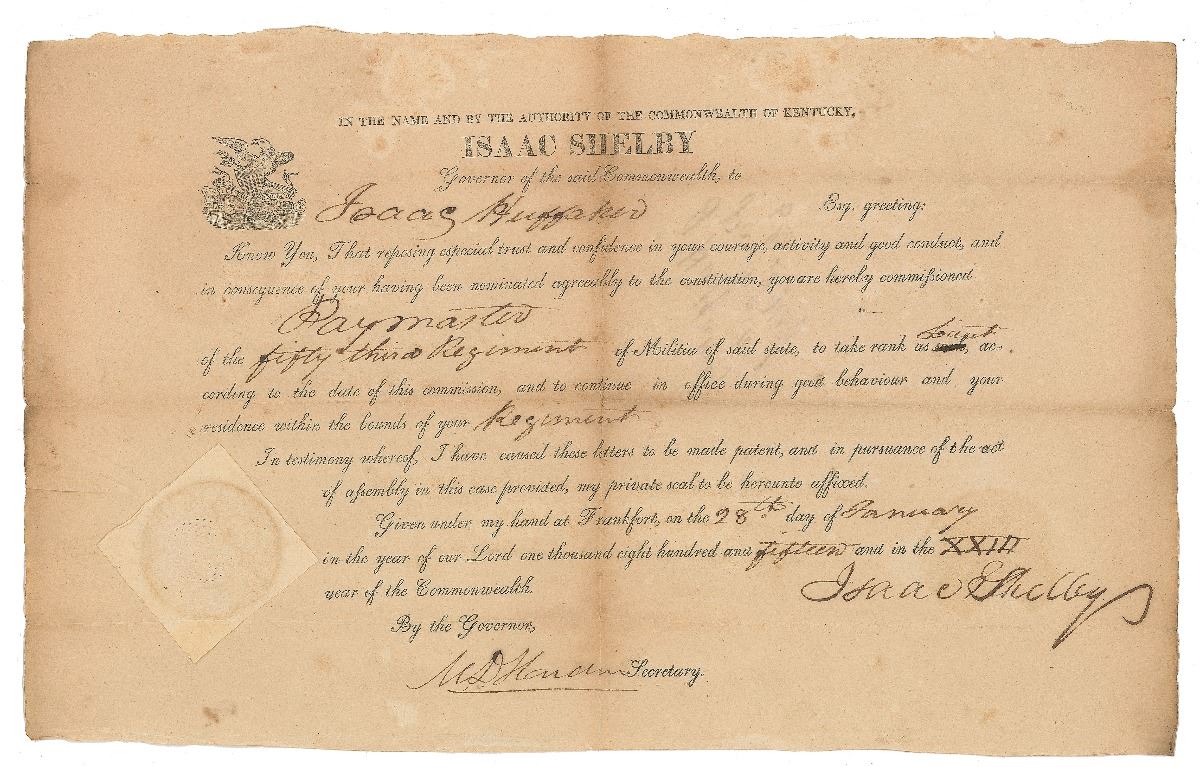 IN THE NAME AND BY THE AUTHORITY OF THE COMMONWEALTH OF KENTUCKY,
ISAAC SHELBY
Governor of the said Commonwealth, to
Isaac Huffaker Esq. greeting:
Know You, That reposing especial trust and confidence in your courage, activity and good conduct, and
in consequence of your having been nominated agreeably to the constitution, you are hereby commissioned
Paymaster
of the fifty third Regiment of Militia of said state, to take rank as , ac-
cording to the date of this commission, and to continue in office during good behaviour and your
residence within the bounds of your Regiment
In testimony whereof, I have caused these letters to be made patent, and in pursuance of the act
of assembly in this case provided, my private seal to be hereunto affixed.
Given under my hand at Frankfort, on the 28th day of January
in the year of our Lord one thousand eight hundred and fifteen and in the XXIII
year of the Commonwealth.
Isaac Shelby
By the Governor,
M D Hardin Secretary.